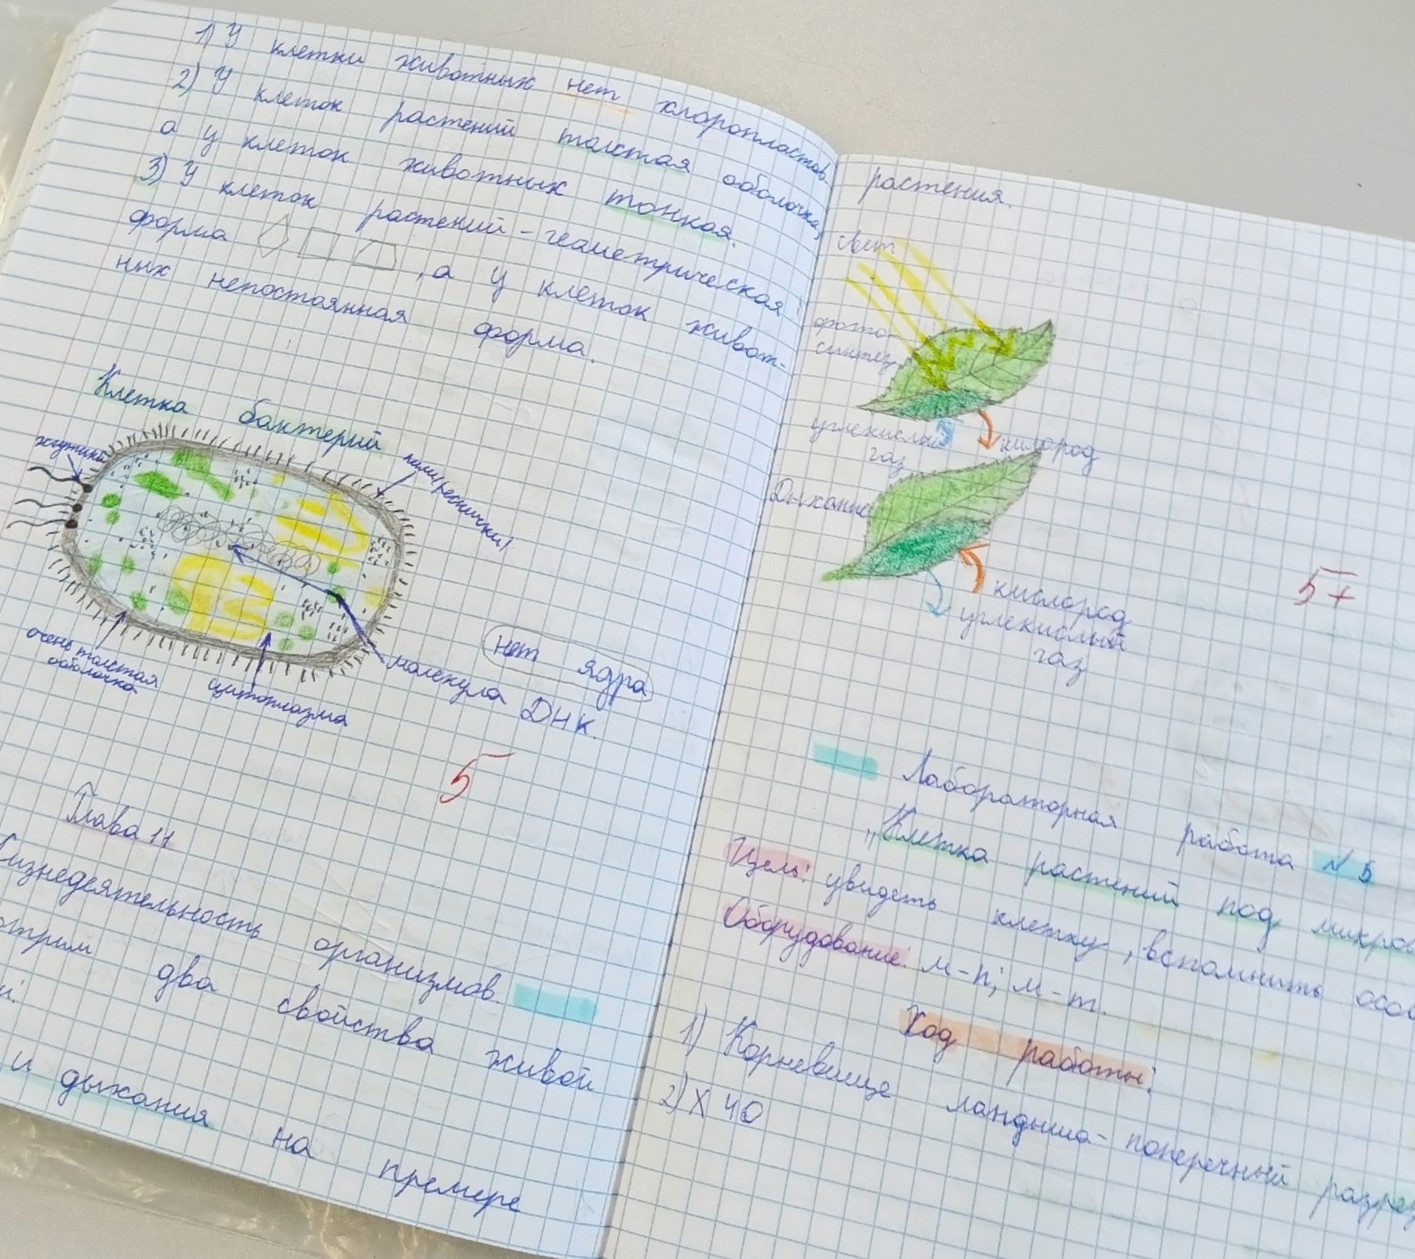 1) У клетки животных нет хлоропластов.
2) У клеток растений толстая оболочка,
а у клеток животных тонкая.
3) У клеток растений - геаметрическая
форма , а у клеток живот-
ных непостоянная форма.
Клетка бактерий
жгутики
пили(реснички)
очень толстая
оболочка
цитоплазма
молекула ДНК.
нет ядра
5
Глава 11
Жизнедеятельность организмов
два свойства живой
и дыхания на премере
растения.
свет
фото-
синтез
углекислый
газ
кислород
Дыхание
кислород
углекислый
газ
5+
Лабораторная работа №5
„Клетка растений под микрос
Цель: увидеть клетку, вспомнить осо
Оборудование: м-п; м-т.
Ход работы:
1) Корневище ландыша- поперечный разрез
2) X 40